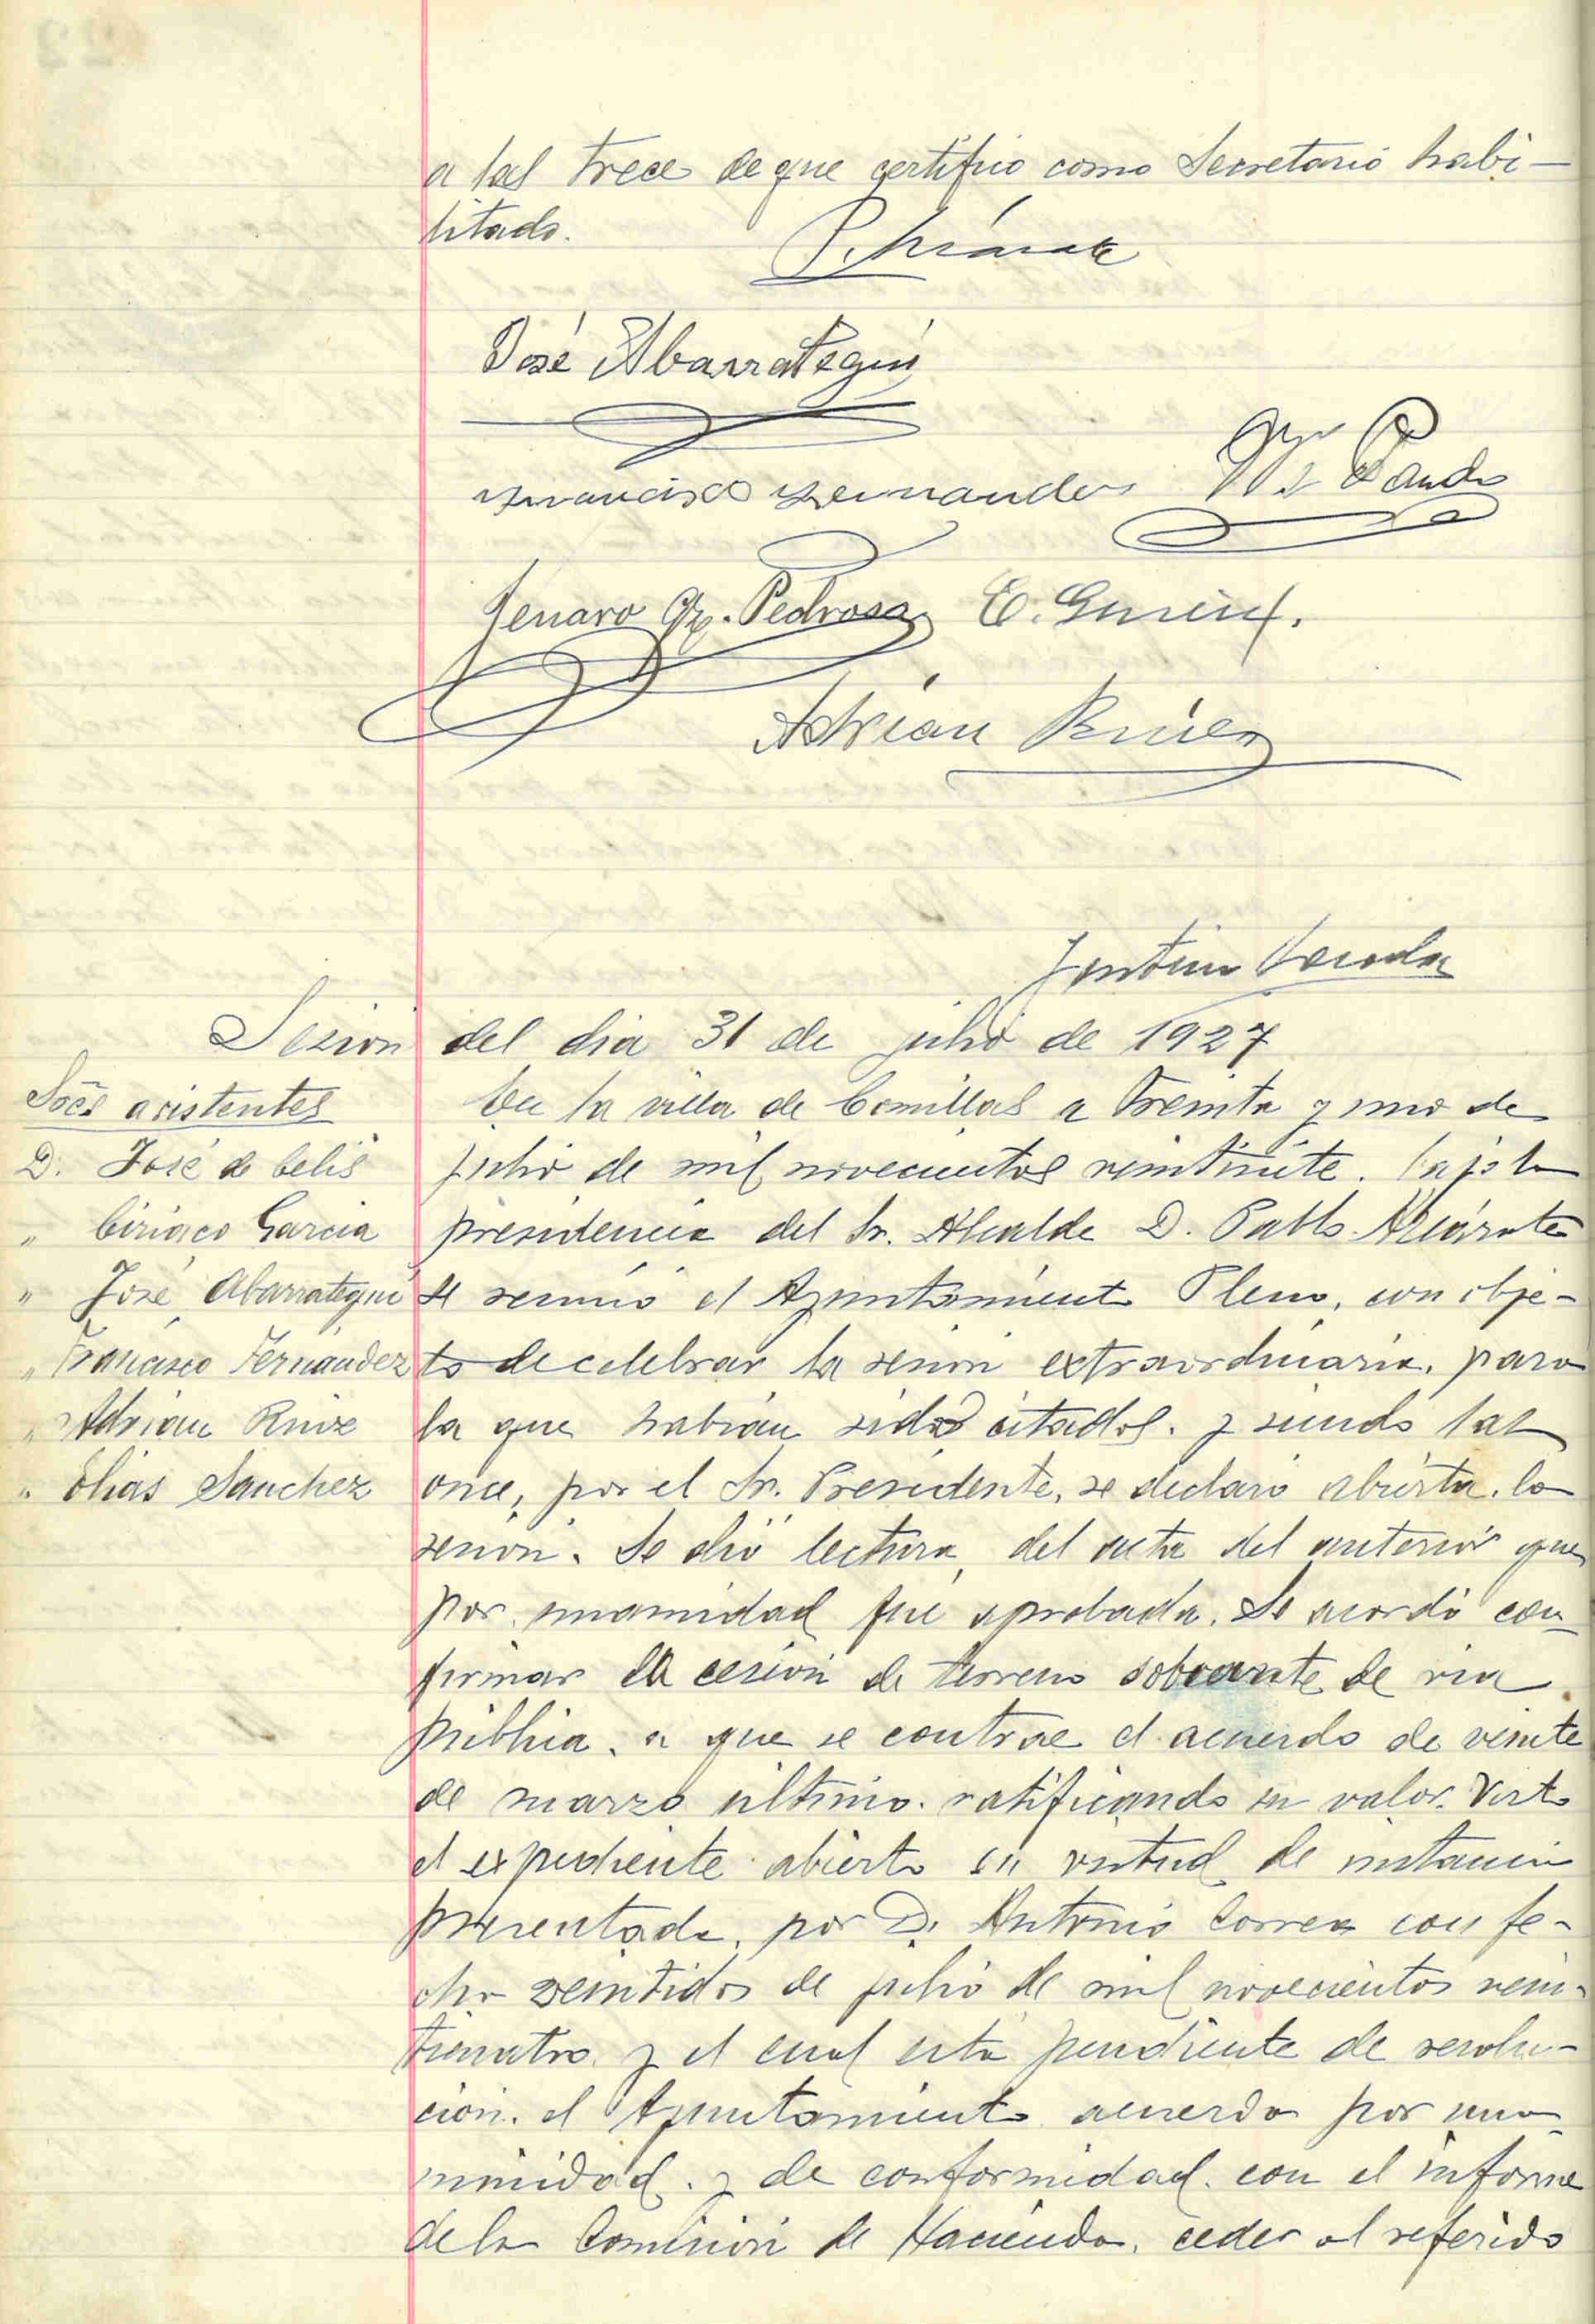 a las trece de que certifico como Secretario habi-
litado.
José Abarrategui
Francisco Fernandez
Pando
Genaro Gz. Pedrosa
Adrián Ruiz
Sesion del dia 31 de julio de 1927
Sres asistentes
D. José de Celis
" Ciriaco Garcia
" José Abarrategui
" Francisco Fernández
" Adrian Ruiz
" Elias Sanchez
En la villa de Comillas a treinta y uno de
julio de mil novecientos veintisiete. bajo la
presidencia del Sr. Alcalde D. Pablo
se reunió el Ayuntamiento Pleno, con obje-
to de celebrar la sesion extraordinaria, para
la que habian sido citados. y siendo las
once, por el Sr. Presidente, se declaró abierta la
sesión. Se dió lectura, del acta del anterior que
por unanimidad fué aprobada. Se acordó con-
firmar la cesión de terreno sobrante de via
pública, a que se contrae el acuerdo de veinte
de marzo último. ratificando su valor. Visto
el expediente abierto en virtud de instancia
presentada, por D. Antonio Correa con fe-
cha veintidos de julio de mil novecientos vein-
ticuatro y el cual está pendiente de resolu-
ción. el Ayuntamiento acuerda por una-
nimidad. y de conformidad. con el informe
de la Comisión de Hacienda, ceder al referido